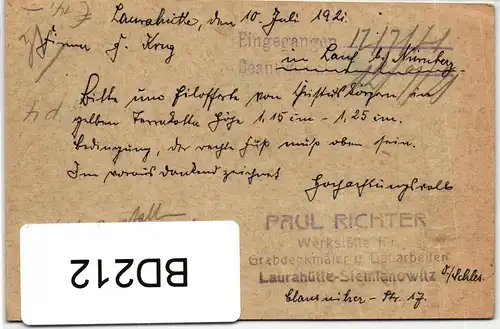 Laurahütte, den 10. Juli 1921.
Firma J. Krug
Eingegangen 17/7/21
in Lauf bei Nürnberg.
Bitte um Eilofferte von Christuskörpern in
gelben Terrakotta Höhe 1.15 cm – 1.25 cm.
Bedingung, der rechte Fuß muß oben sein.
Im voraus dankend zeichnet
Hochachtungsvoll
PAUL RICHTER
Werkstätte für
Grabdenkmäler u Bauarbeiten
Laurahütte-Siemianowitz O/Schles.
Str. 17.
BD212